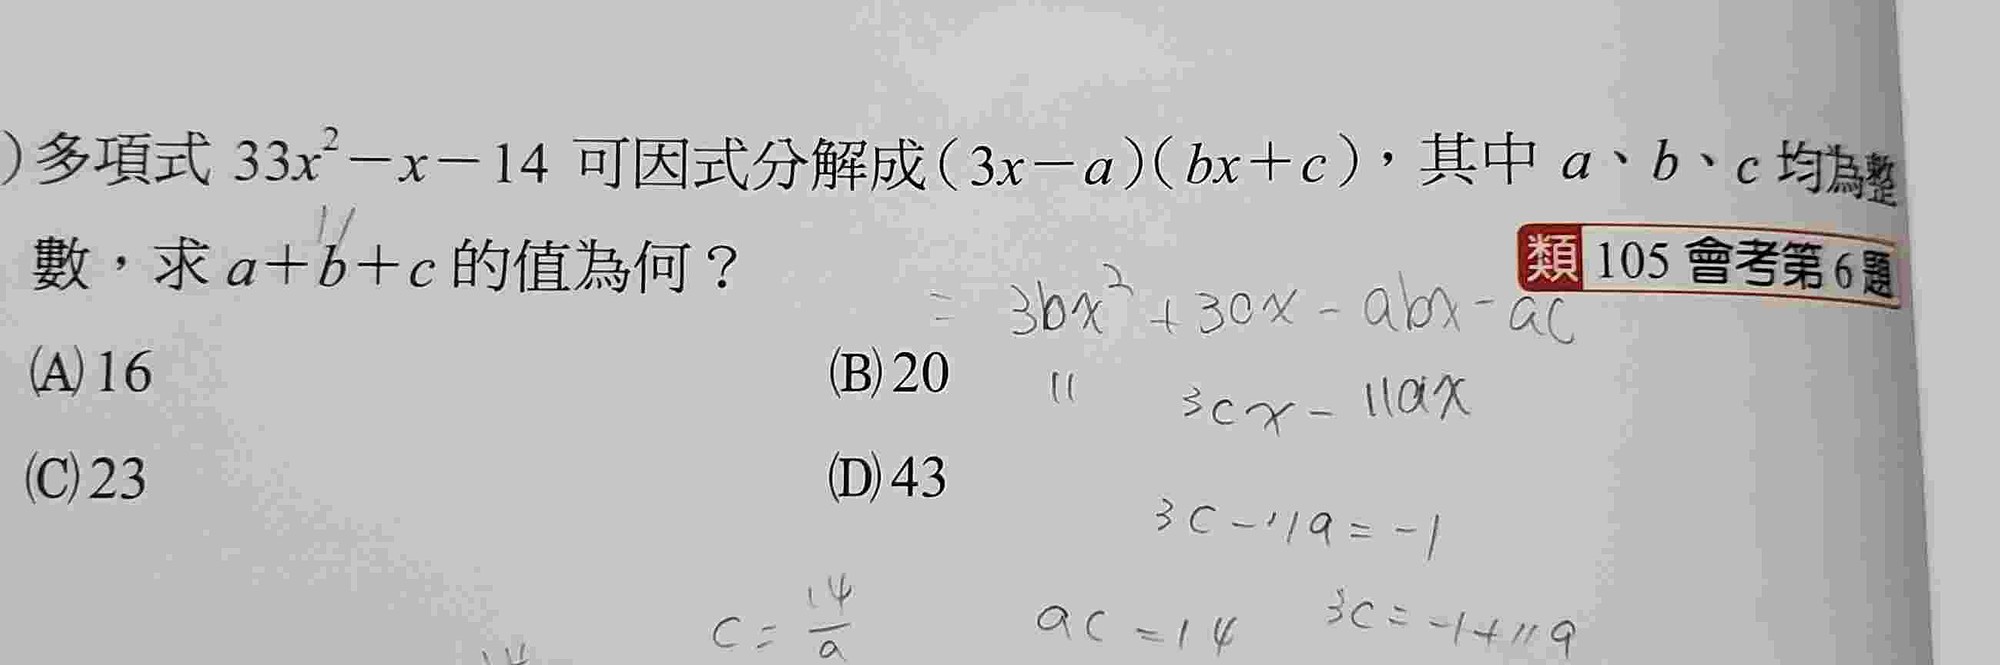 )多項式 33x²－x－14 可因式分解成(3x－a)(bx＋c)，其中 a、b、c 均為整
11
數，求 a＋b＋c 的值為何？
類 105 會考第 6 題
= 3bx² + 3cx - abx - ac
(A)16
(B)20
11 3cx - 11ax
(C)23
(D)43
3c - 11a = -1
c = 14/a
ac = 14
3c = -1 + 11a